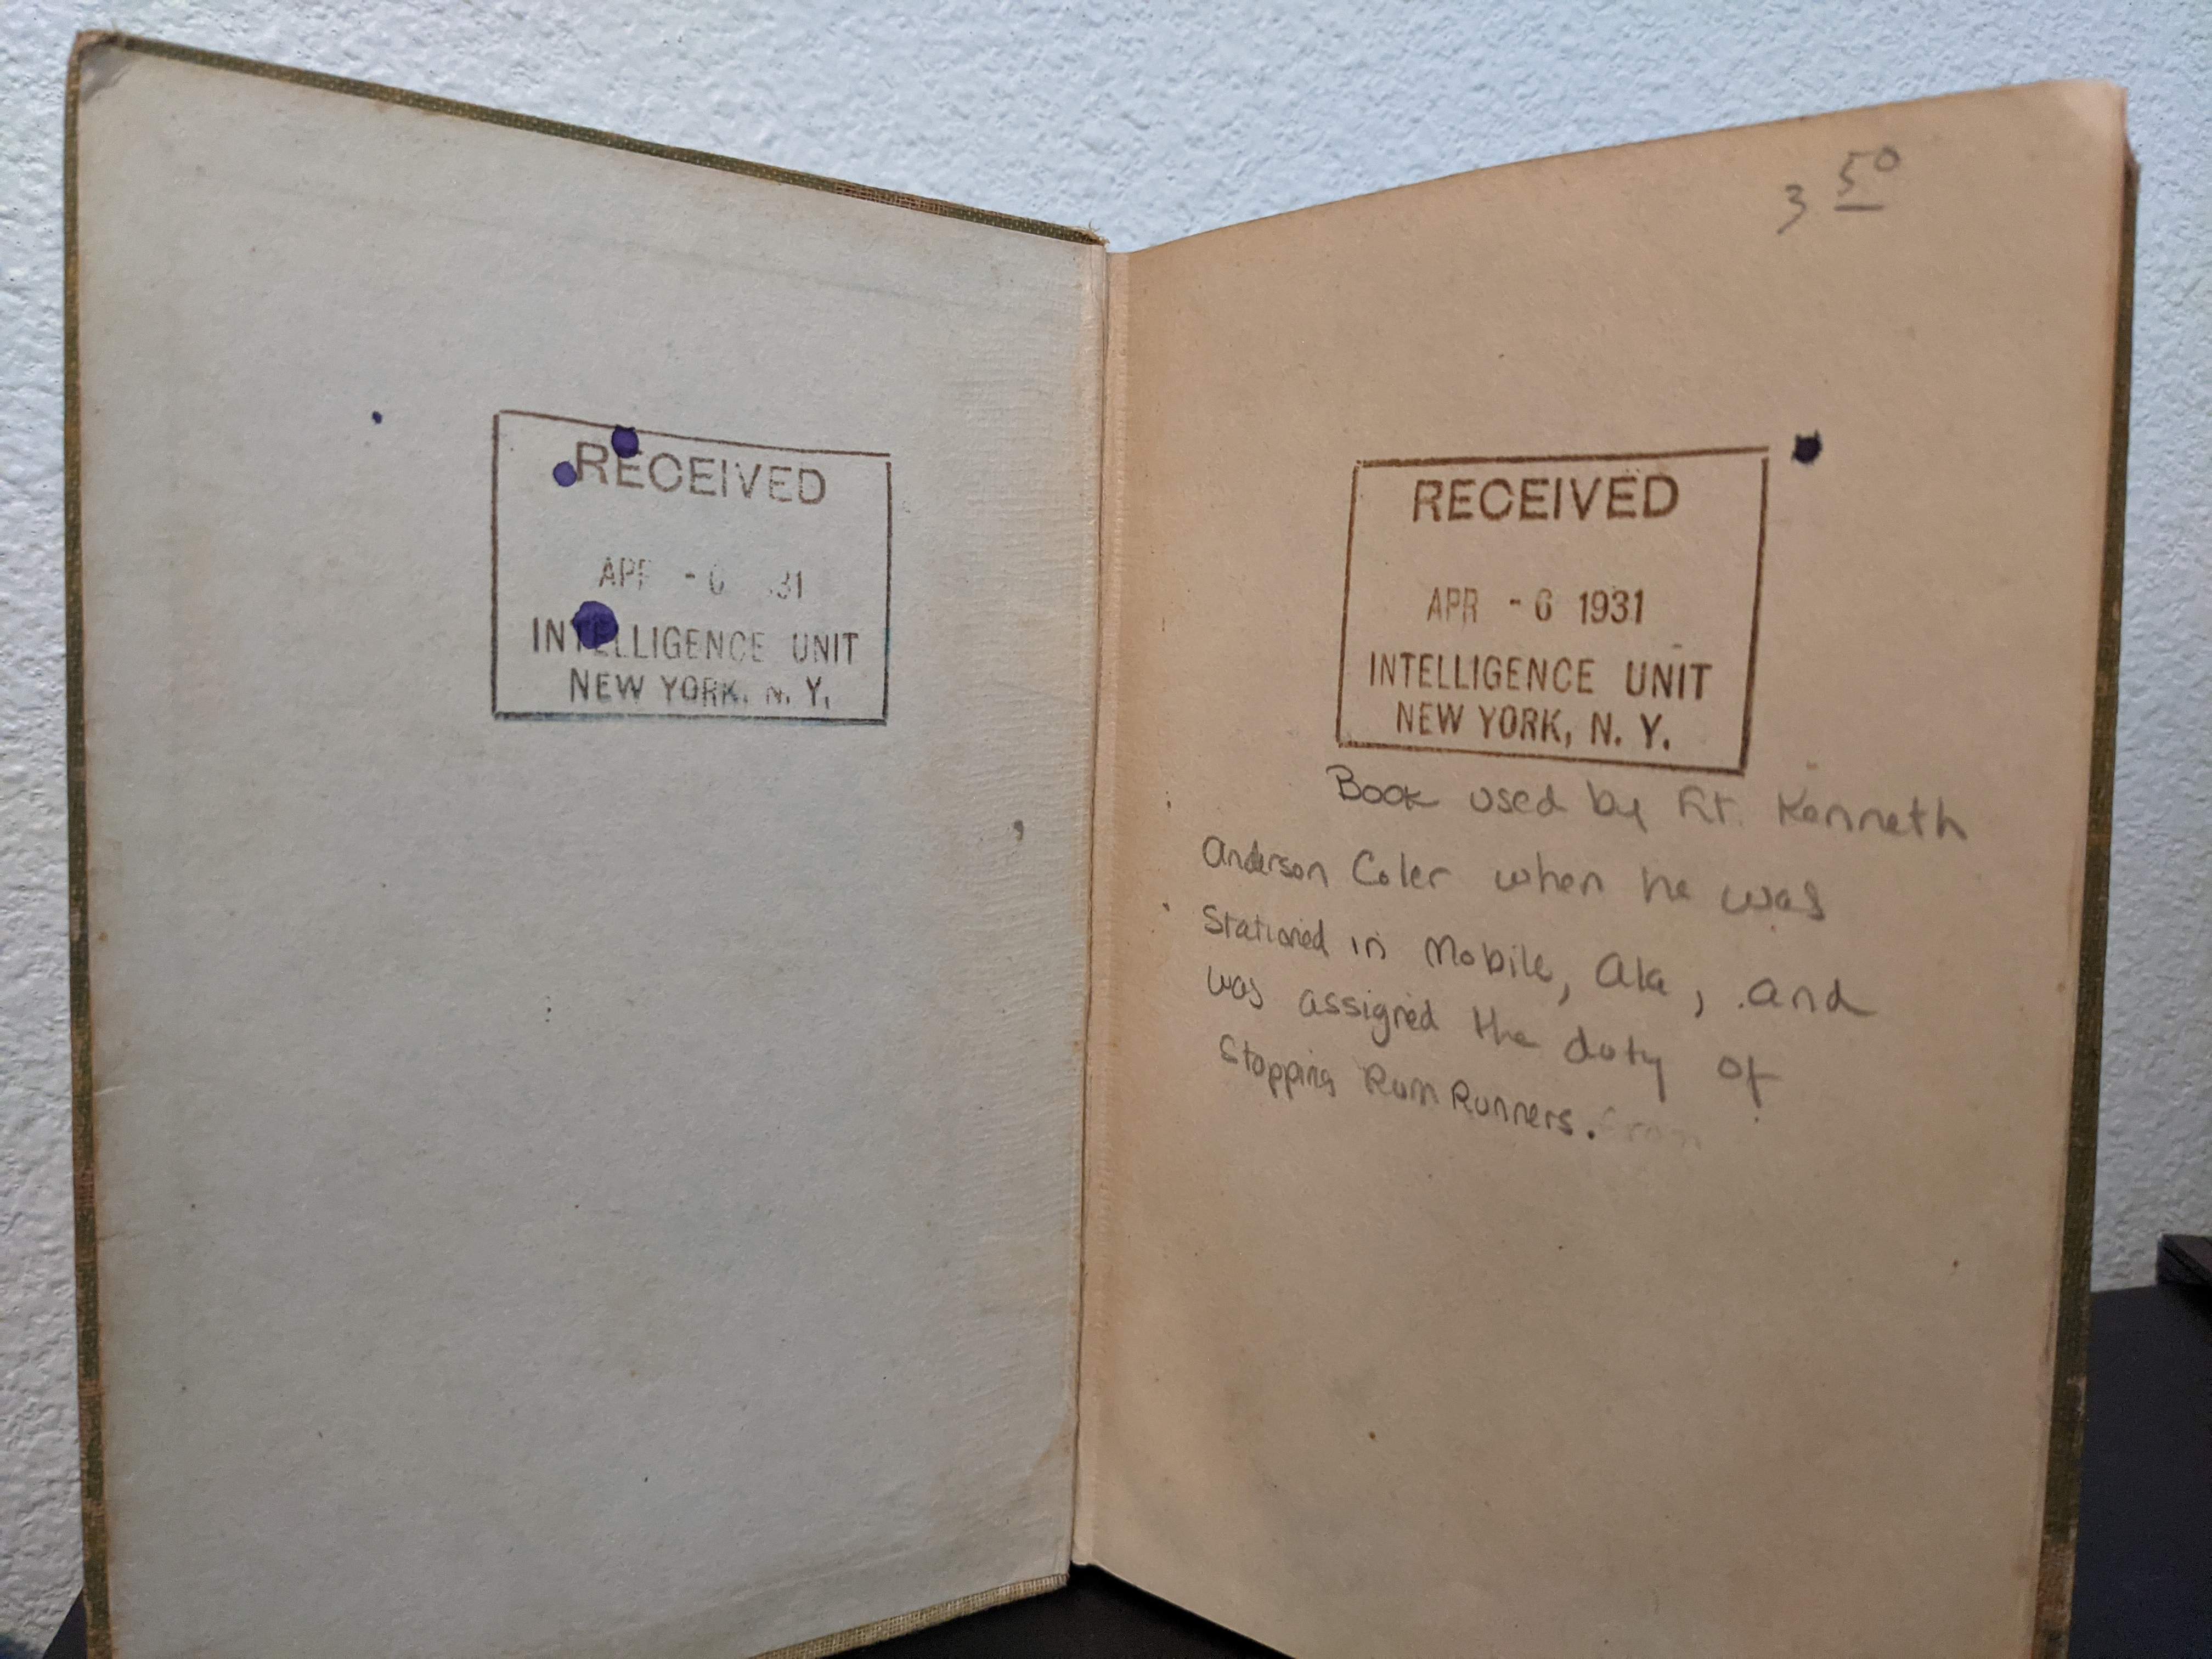 RECEIVED
APR - 6 31
INTELLIGENCE UNIT
NEW YORK, N. Y.
3 50
RECEIVED
APR - 6 1931
INTELLIGENCE UNIT
NEW YORK, N. Y.
Book used by Kenneth
Anderson Coler when he was
Stationed in Mobile, Ala, and
was assigned the duty of
Stopping Rum Runners. from